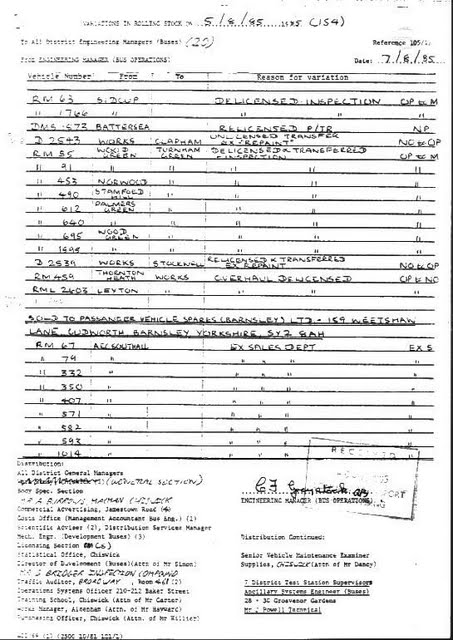 VARIATIONS IN ROLLING STOCK ON 5/8/85 1985 (154)
To All District Engineering Managers (Buses) (20) Reference 105/1
From ENGINEERING MANAGER (BUS OPERATIONS) Date: 7/8/85
Vehicle Number From To Reason for variation
RM 63 SIDCUP DELICENSED-INSPECTION OP to M
" 1766 " " "
DMS 1573 BATTERSEA RELICENSED P/TR NP
D 2543 WORKS CLAPHAM UNLICENSED TRANSFER EX "REPAINT" NO to OP
RM 35 WOOD GREEN TURNHAM GREEN DELICENSED & TRANSFERRED - INSPECTION OP to M
" 91 " " " "
" 453 NORWOOD " " "
" 490 STAMFORD HILL " " "
" 612 PALMERS GREEN " " "
" 640 " " " "
" 695 WOOD GREEN " " "
" " " " "
D 2539 WORKS STOCKWELL RELICENSED & TRANSFERRED EX REPAINT NO to OP
RM 459 THORNTON HEATH WORKS OVERHAUL DELICENSED OP to NO
RML 2603 LEYTON " " "
SOLD TO PASSENGER VEHICLE SPARES (BARNSLEY) LTD - 159 WEETSHAW
LANE, CUDWORTH, BARNSLEY, YORKSHIRE, SY2 8AH
RM 67 AEC SOUTHALL EX SALES DEPT EX S
" 79 " " " "
" 332 " " " "
" 350 " " " "
" 407 " " " "
" 571 " " " "
" 582 " " " "
" 593 " " " "
" 1014 " " " "
RECEIVED
Distribution:
All District General Managers
(GENERAL SECTION)
Body Spec. Section
CHISWICK
Commercial Advertising, Jamestown Road
Costs Office (Management Accountant Bus Eng.) (1)
Scientific Adviser (2), Distribution Services Manager
Mech. Engr. (Development Buses) (3)
Licensing Section
Statistical Office, Chiswick
Director of Development (Buses)(Attn of Mr Simon)
BRIDGER INSPECTION COMPOUND
Traffic Auditor, BROADWAY, Room
Operations Systems Officer 210-212 Baker Street
Training School, Chiswick (Attn of Mr Carter)
Works Manager, Aldenham (Attn. of Mr Hayward)
Purchasing Officer, Chiswick (Attn. of Mr Hillier)
ENGINEERING MANAGER (BUS OPERATIONS)
Distribution Continued:
Senior Vehicle Maintenance Examiner
Supplies, CHISWICK (Attn of Mr Dancy)
7 District Test Station Supervisors
Ancillary Systems Engineer (Buses)
28 - 30 Grosvenor Gardens
Mr J Powell Technical